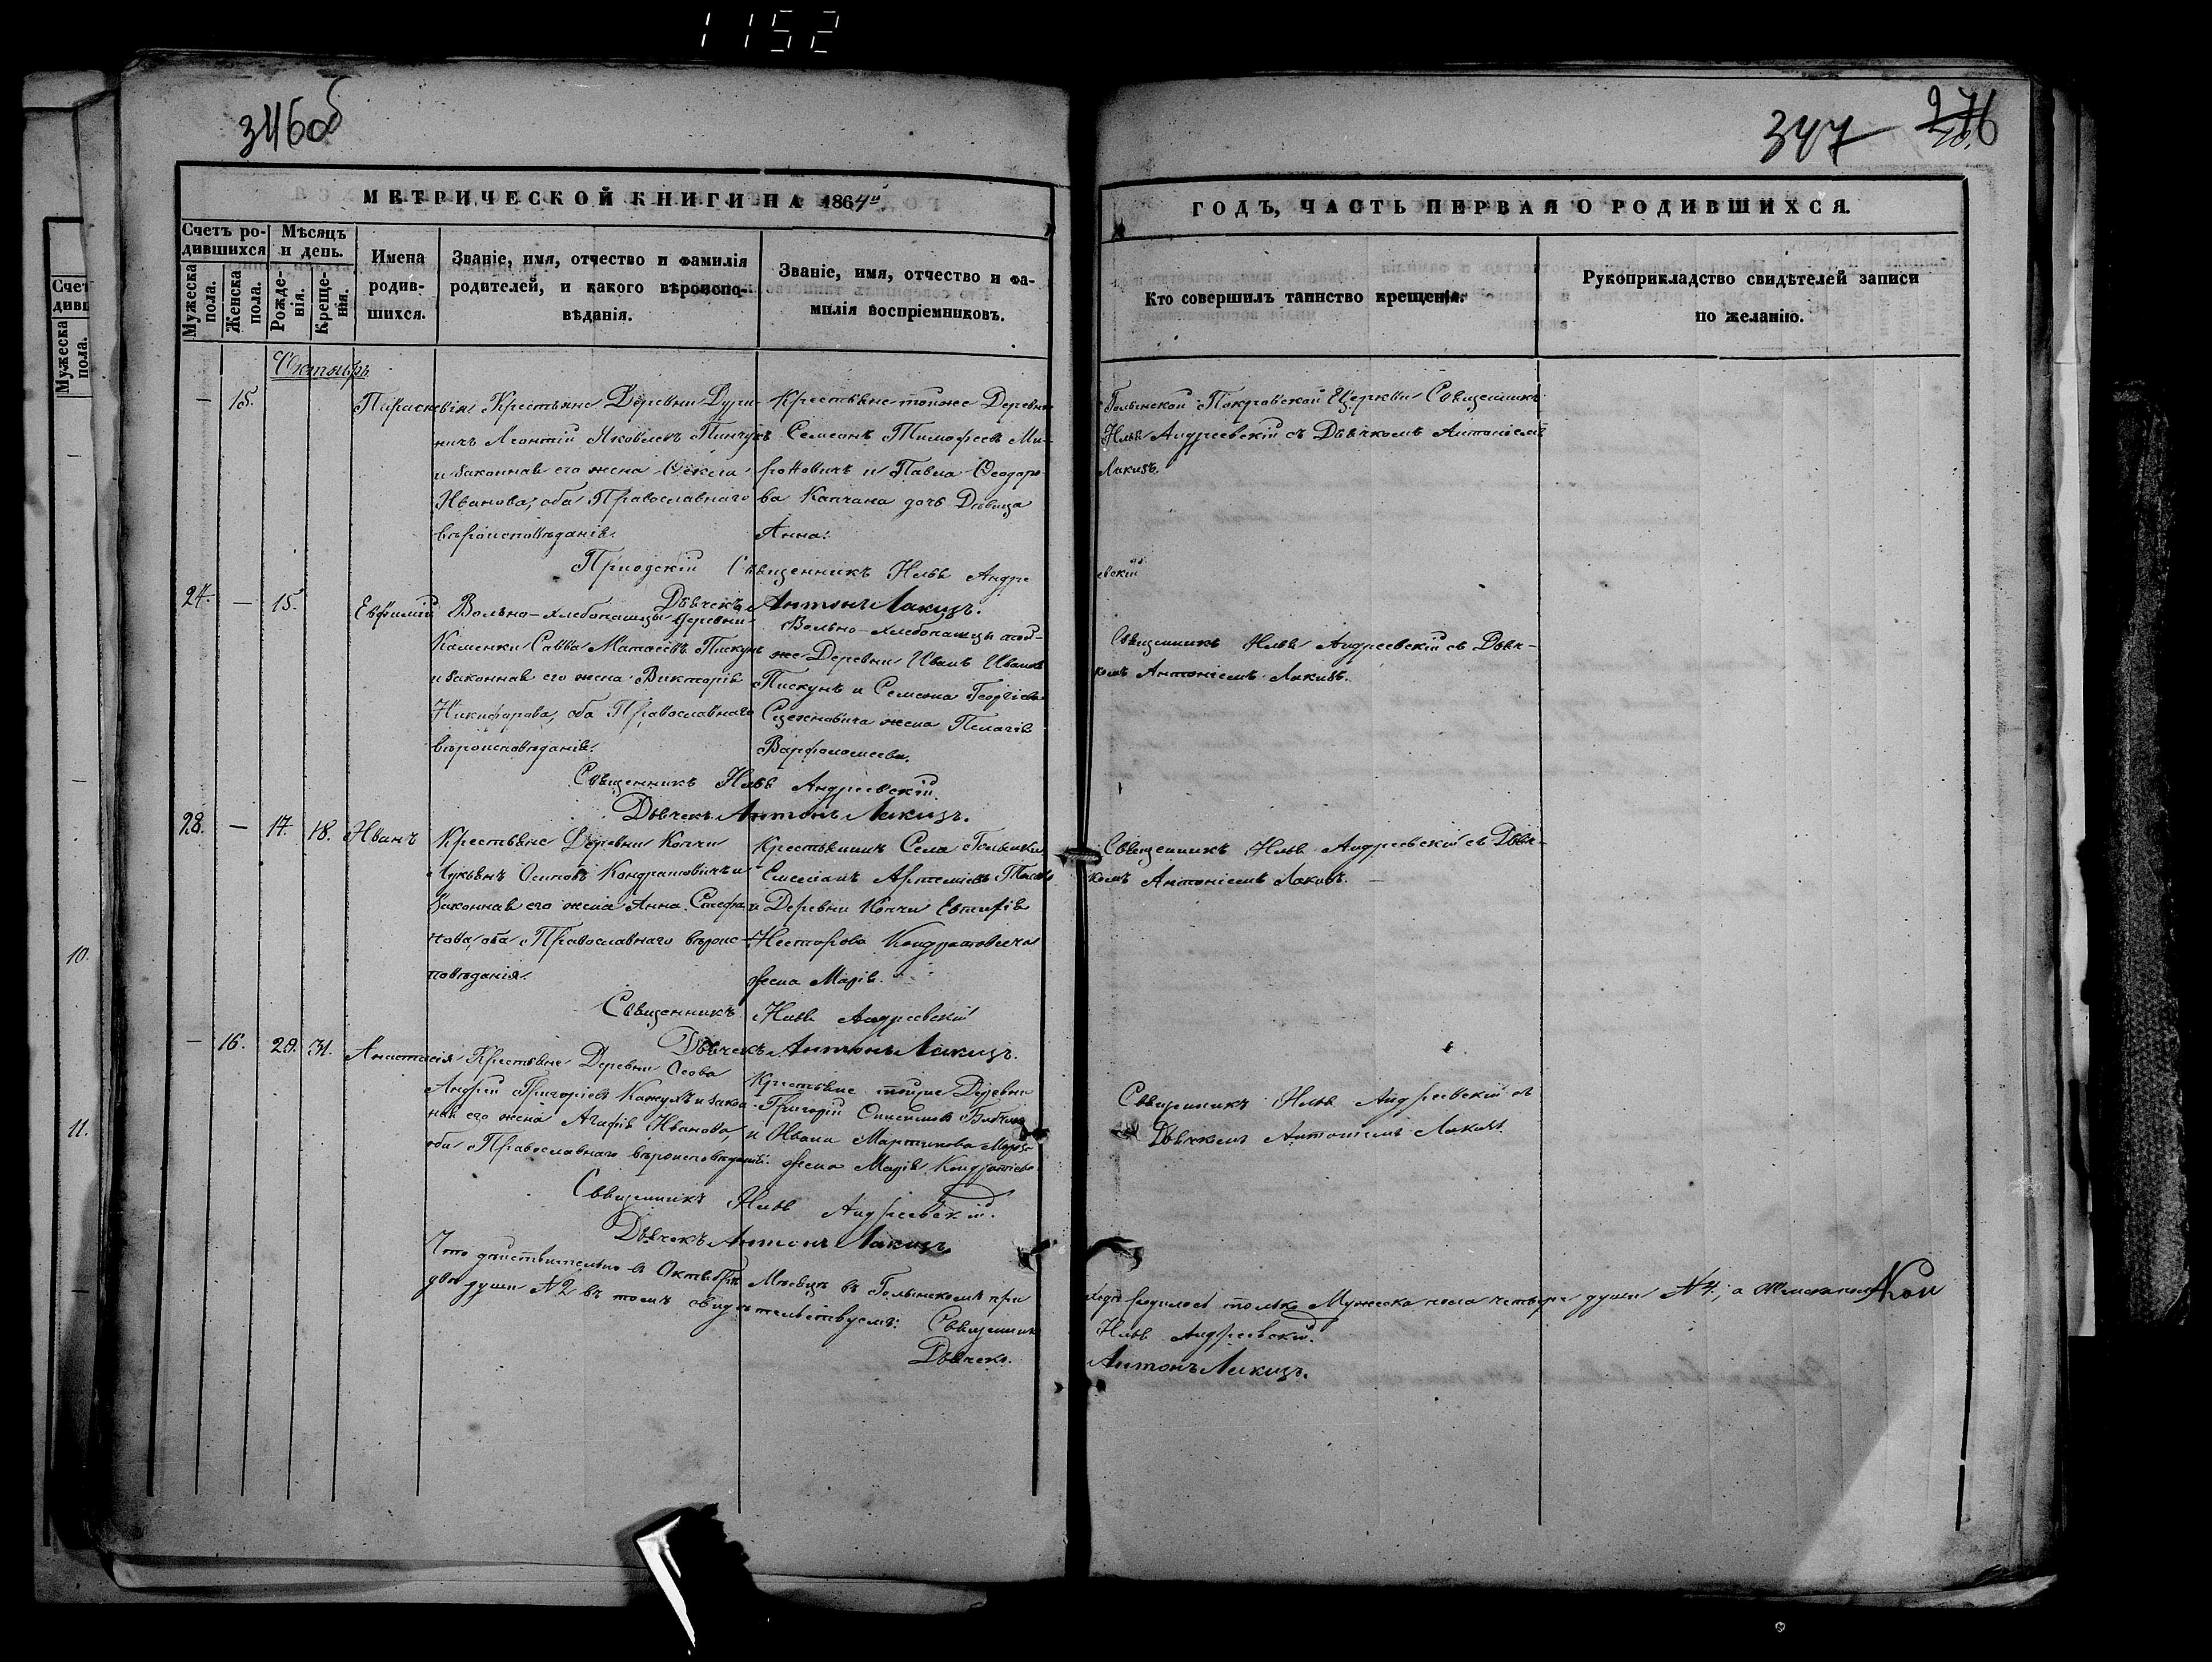 1152
346об
347
276
МЕТРИЧЕСКОЙ КНИГИ НА 1864й
ГОДЪ, ЧАСТЬ ПЕРВАЯ О РОДИВШИХСЯ.
Счетъ родившихся
Мужеска пола.
Женска пола.
Мѣсяцъ и день.
Рожденія.
Крещенія.
Имена родившихся.
Званіе, имя, отчество и фамилія родителей, и какого вѣроисповѣданія.
Званіе, имя, отчество и фамилія воспріемниковъ.
Кто совершилъ таинство крещенія.
Рукоприкладство свидѣтелей записи по желанію.
Счет
дивш
Мужеска пола.
10.
11.
Октябрь
— 15.
Параскевія
Крестьяне Деревни
Леонтій Яковлевъ Пинчукъ
и законная его жена Ѳекла
Иванова, оба Православнаго
вѣроисповѣданія.
Крестьяне тойже Деревни
Семеонъ Тимофеевъ Ми-
роновичъ и Павла Ѳеодоро-
ва Капчана дочь Дѣвица
Анна.
Голынской Покровской Церкви Священникъ
Илья Андреевскій съ Дьячкомъ Антоніемъ
Лакизъ.
Священникъ Илья Андре
евскій
Дьячекъ Антонъ Лакизъ.
27. — 15.
Евфимій
Вольно-хлебопашцы Деревни
Каменки Савва Матѳеевъ Пискунъ
и законная его жена Викторія
Никифорова, оба Православнаго
вѣроисповѣданія.
Вольно-хлебопашцы той-
же Деревни Иванъ Ивановъ
Пискунъ и Семена Георгіева
жена Пелагія
Варфоломеева.
Священникъ Илья Андреевскій съ Дьяч-
комъ Антоніемъ Лакизъ.
Священникъ Илья Андреевскій.
Дьячекъ Антонъ Лакизъ.
28. — 17. 18.
Иванъ
Крестьяне Деревни Копчи
Лукьянъ Осиповъ Кондратовичъ и
Законная его жена Анна Стефа-
нова, оба Православнаго вѣроис-
повѣданія.
Крестьянинъ Села Голынки
Емеліанъ Артеміевъ
и Деревни Копчи Евтифія
Несторова Кондратовича
жена Марія.
Священникъ Илья Андреевскій съ Дьяч-
комъ Антоніемъ Лакизъ. —
Священникъ Илья Андреевскій
Дьячекъ Антонъ Лакизъ.
— 16. 29. 31.
Анастасія
Крестьяне Деревни Осова
Андрей Григорьевъ и закон-
ная его жена Агафія Иванова,
оба Православнаго вѣроисповѣданія.
Крестьяне тойже Деревни
Григорій
и Ивана Мартинова
жена Марія Кондратьева
Священникъ Илья Андреевскій съ
Дьячкомъ Антоніемъ Лакизъ.
Священникъ Илья Андреевскій.
Дьячекъ Антонъ Лакизъ.
Что дѣйствительно въ Октябрѣ Мѣсяцѣ въ Голынскомъ при
ходѣ родилось только Мужеска пола четыре души № 4, а Женска пола
двѣ души № 2 въ томъ свидѣтельствуемъ: Священникъ
Илья Андреевскій.
Дьячекъ
Антонъ Лакизъ.